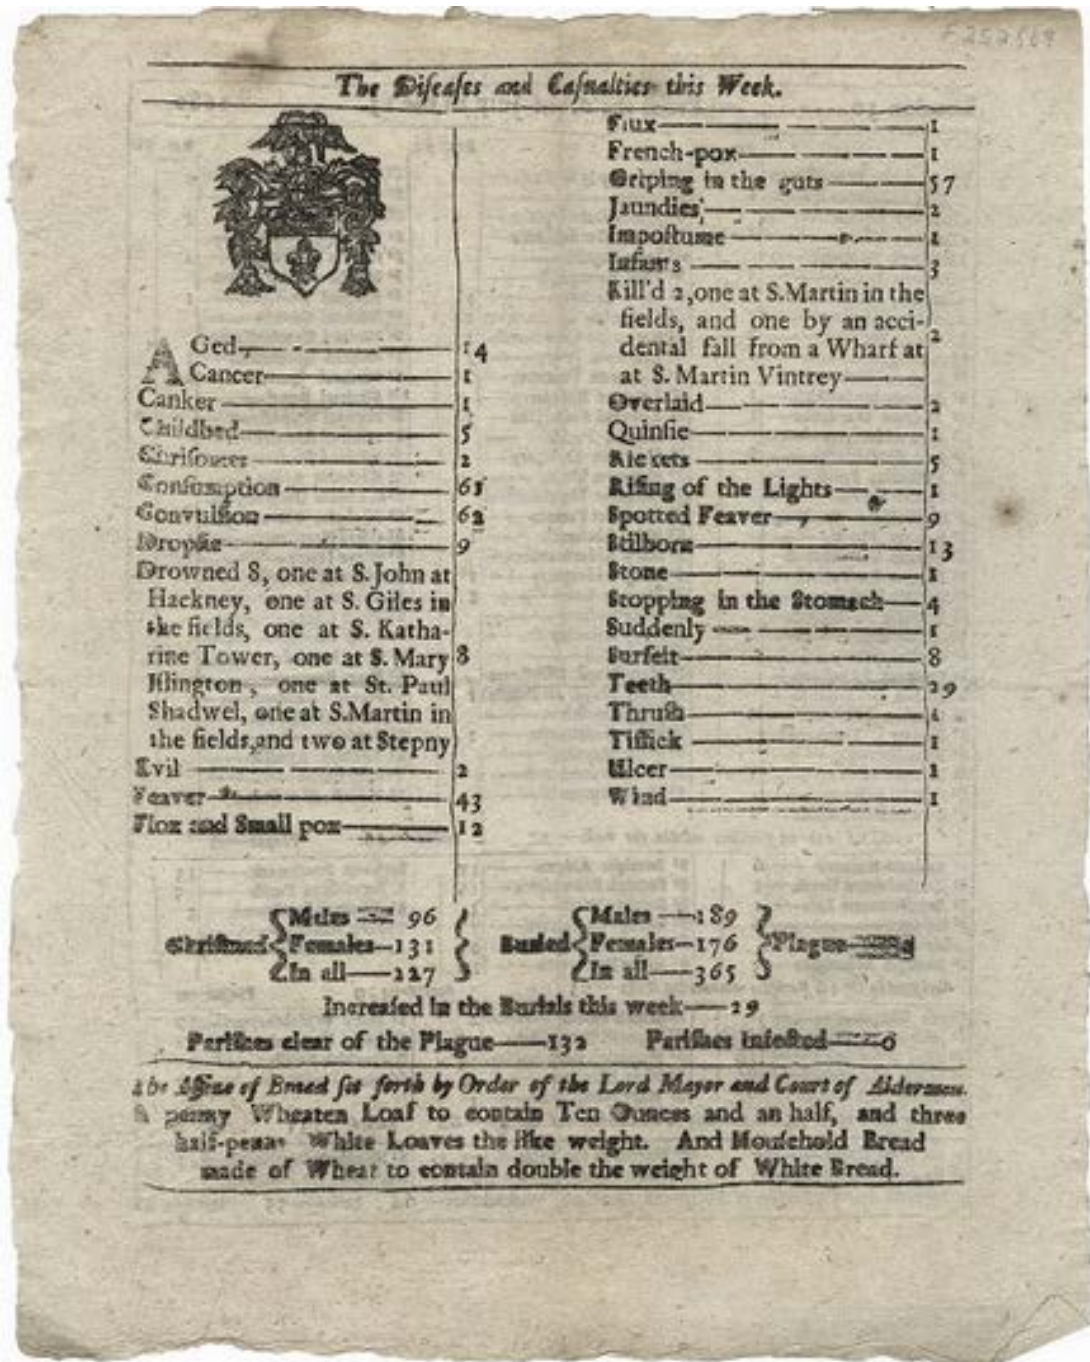 F252569
The Diſeaſes and Caſualties this Week.
AGed 14
Cancer 1
Canker 1
Childbed 5
Chriſomes 2
Conſumption 65
Convulſion 62
Dropſie 9
Drowned 8, one at S. John at
Hackney, one at S. Giles in
the fields, one at S. Katha-
rine Tower, one at S. Mary 8
Iſlington, one at St. Paul
Shadwel, one at S.Martin in
the fields,and two at Stepny
Evil 2
Feaver 43
Flox and Small pox 12
Flux 1
French-pox 1
Griping in the guts 57
Jaundies 2
Impoſtume 1
Infants 3
Kill'd 2,one at S.Martin in the
fields, and one by an acci- 2
dental fall from a Wharf at
at S. Martin Vintrey
Overlaid 2
Quinſie 1
Rickets 5
Riſing of the Lights 1
Spotted Feaver 9
Stilborn 13
Stone 1
Stopping in the Stomach 4
Suddenly 1
Surfeit 8
Teeth 29
Thruſh 1
Tiſſick 1
Ulcer 1
Wind 1
Males 96 Males 189
Chriſtned Females 131 Buried Females 176 Plague
In all 227 In all 365
Increaſed in the Burials this week 29
Pariſhes clear of the Plague 132 Pariſhes infected 0
The Aſſize of Bread ſet forth by Order of the Lord Mayor and Court of Aldermen.
A penny Wheaten Loaf to contain Ten Ounces and an half, and three
half-penny White Loaves the like weight. And Houſehold Bread
made of Wheat to contain double the weight of White Bread.